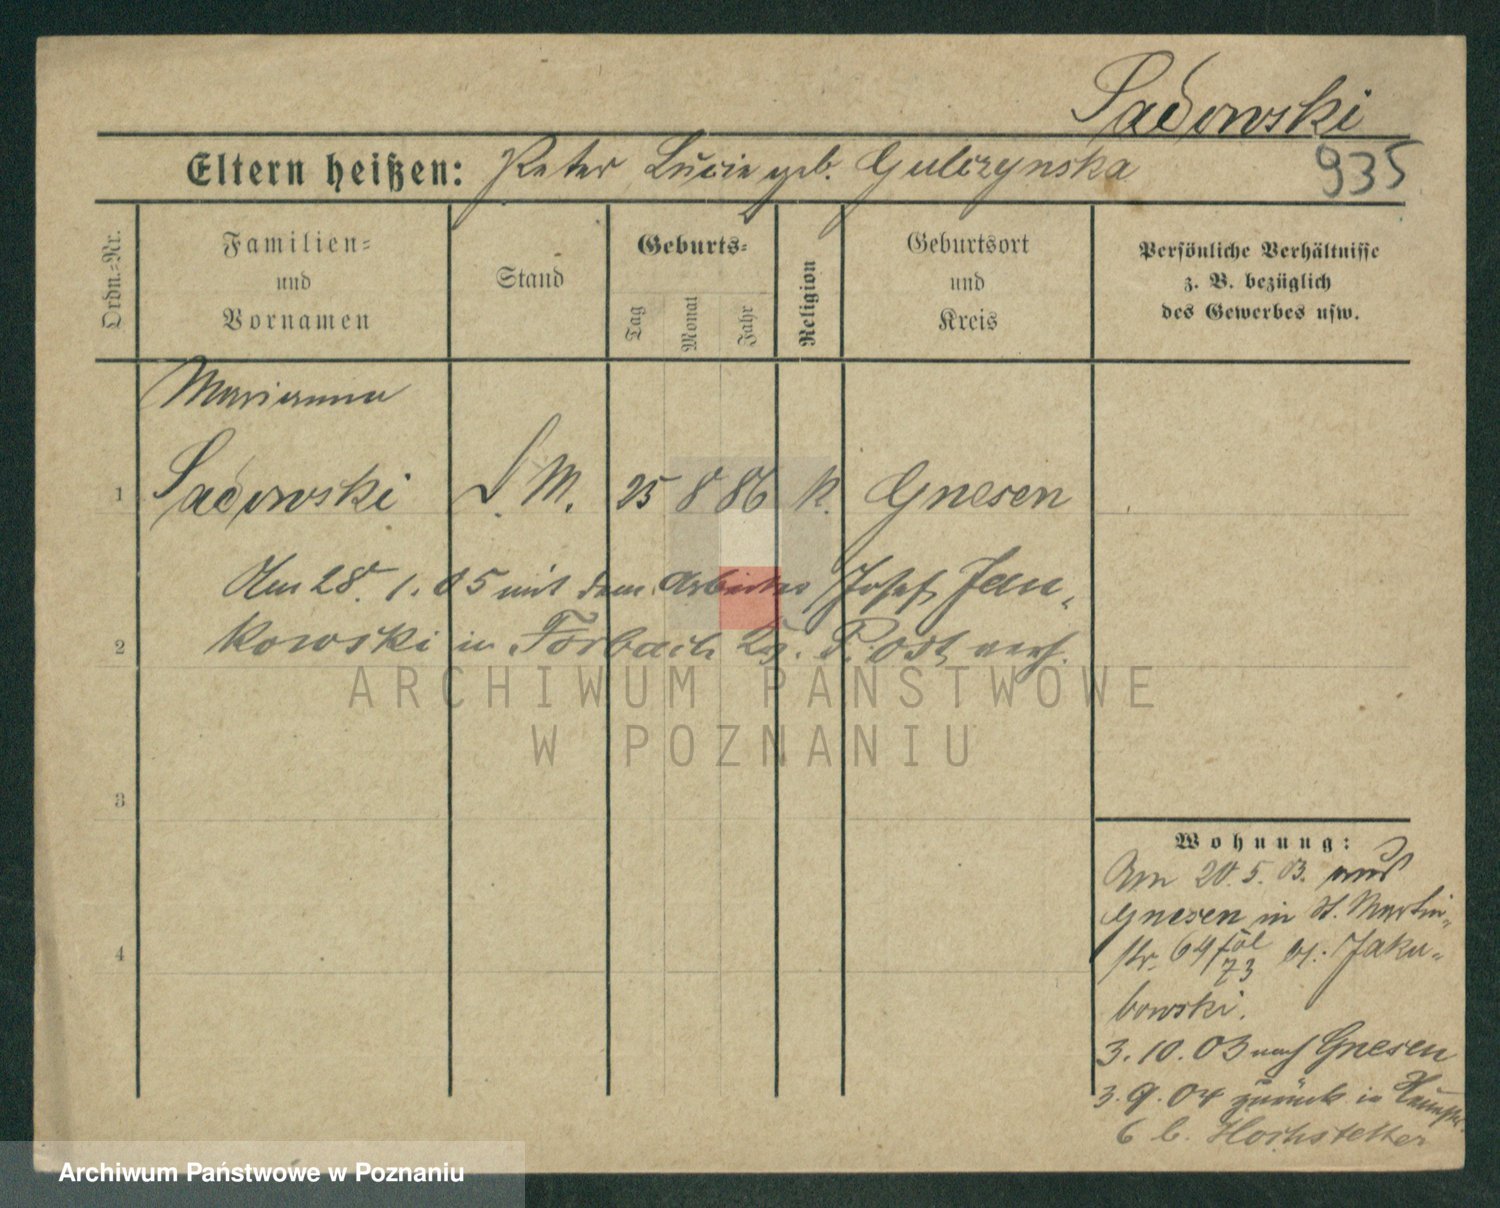 Sadowski
935
Eltern heißen: Peter Lucie geb. Gulczynska
Ordn.=Nr.
Familien=
und
Vornamen
Stand
Geburts=
Tag
Monat
Jahr
Religion
Geburtsort
und
Kreis
Persönliche Verhältnisse
z. B. bezüglich
des Gewerbes usw.
Marianna
1 Sadowski D. M. 25 8 86 k. Gnesen
Am 28. 1. 05 mit dem Arbeiter Josef Jan-
2 kowski in Forbach P. Ost verh.
3
4
Wohnung:
Am 20. 5. 03. aus
Gnesen in St. Martin-
str. 64/ 73 Jaku-
bowski.
3. 10. 03 nach Gnesen
3. 9. 04 zurück in
6 b. Hochstetter
ARCHIWUM PAŃSTWOWE
W POZNANIU
Archiwum Państwowe w Poznaniu